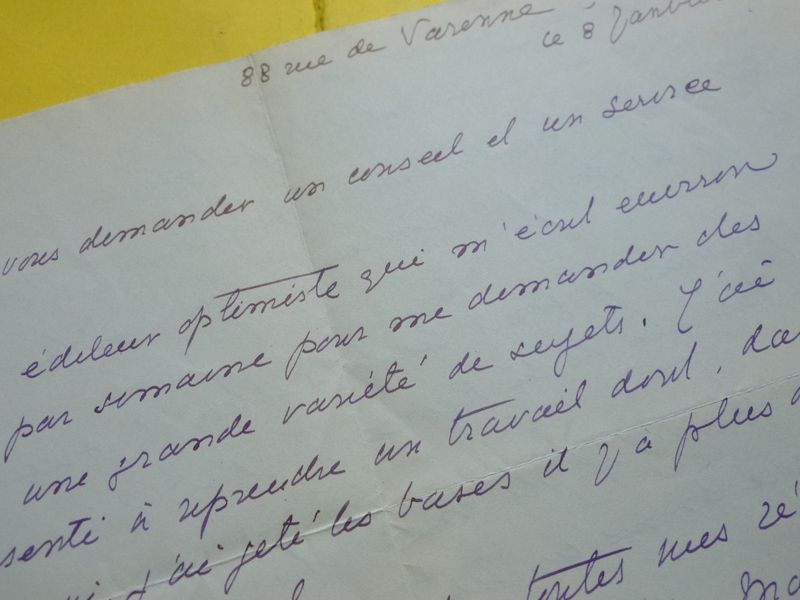 88 rue de Varenne
ce 8 Janvie
vous demander un conseil et un service
éditeur optimiste qui m'écrit environ
par semaine pour me demander des
une grande variété de sujets. J'ai
senti à reprendre un travail dont, da
j'ai jeté les bases il y a plus
toutes mes ré
Ma